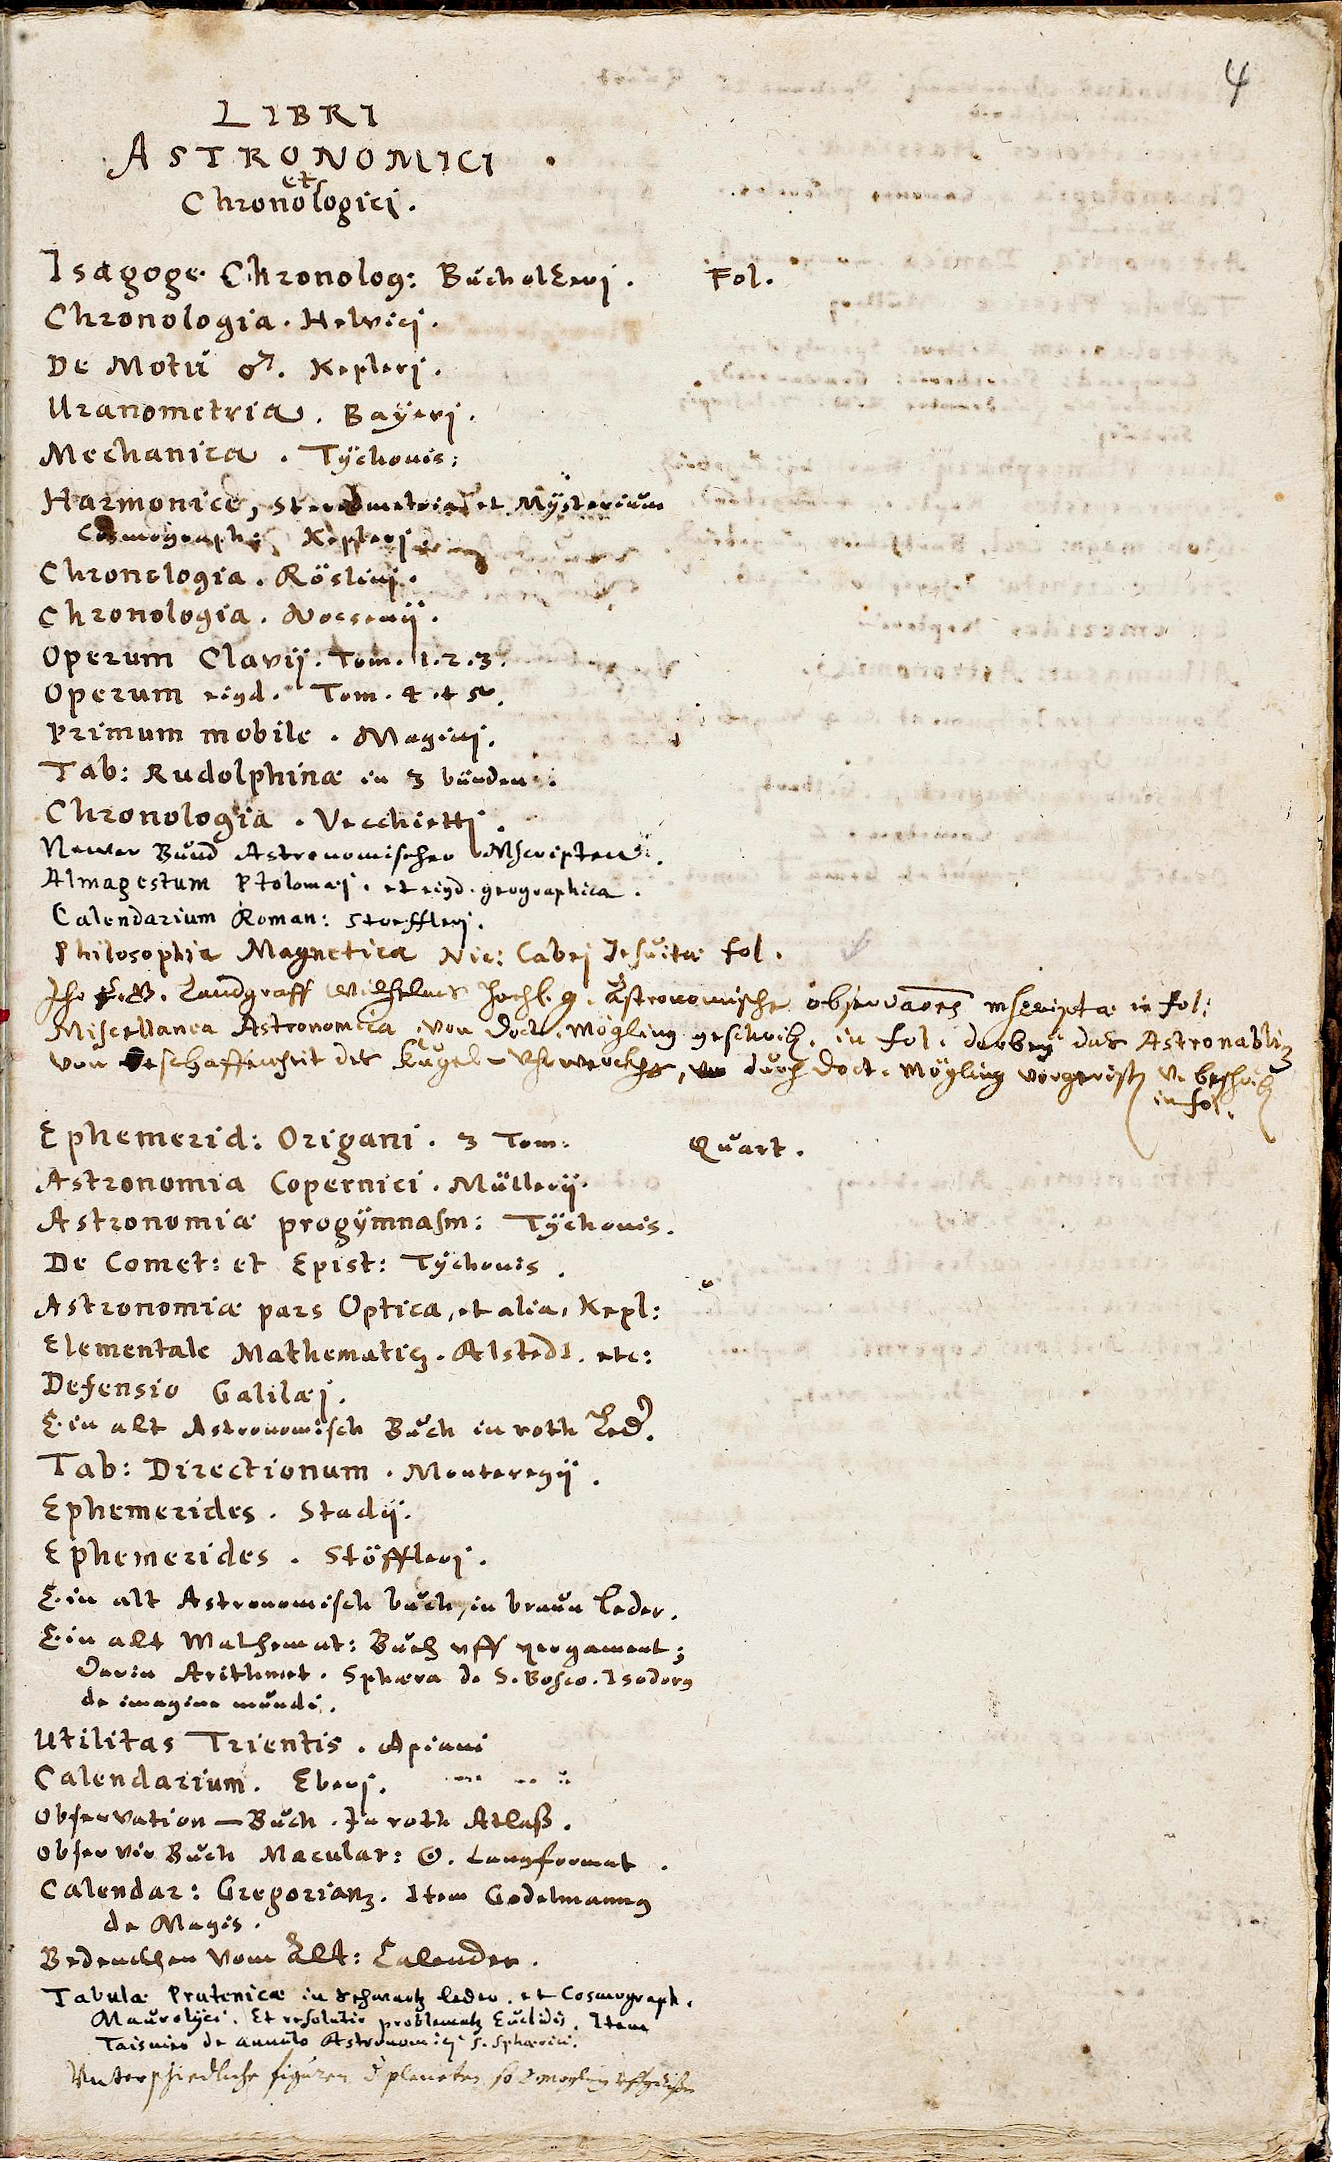 4
LIBRI
ASTRONOMICI
et
Chronologici.
Isagoge Chronolog: Bucholtzeri. Fol.
Chronologia. Helvici.
De Motu ♂. Kepleri.
Uranometria. Bayeri.
Mechanica. Tÿchonis.
Harmonice, Stereometria et Mÿsterium
Cosmograph: Kepleri
Chronologia. Röslini.
Chronologia.
Operum Clavij. Tom. 1.2.3.
Operum eiusd. Tom. 4 et 5.
Primum mobile. Magini.
Tab: Rudolphinæ in 3 bünden.
Chronologia. Vecchietti.
Newer Bund Astronomischer Mscripten.
Almagestum Ptolomæi. et eiusd. geographica.
Calendarium Roman: Stoeffleri.
Philosophia Magnetica Nic: Cabei Jesuitæ fol.
Landgraff Wilhelms hochl. g. Astronomische observationes mscripta in fol:
Miscellanea Astronomica, von Doct. Mögling geschrib. in fol. darbey das
von beschaffenheit des Kugel-Uhrwercks, durch Doct. Mögling
in fol.
Ephemerid: Origani. 3 Tom. Quart.
Astronomia Copernici. Müllerij.
Astronomiæ progÿmnasm: Tÿchonis.
De Comet: et Epist: Tÿchonis.
Astronomiæ pars Optica, et alia, Kepl:
Elementale Mathematicū. Alstedi. etc:
Defensio Galilæi.
Ein alt Astronomisch Buch in roth Led.
Tab: Directionum. Monteregij.
Ephemerides. Stadij.
Ephemerides. Stöffleri.
Ein alt Astronomisch buch, in braun Leder.
Ein alt Mathemat: Buch uff pergament;
Darin Arithmet. Sphæra de S. Bosco. Isodorus
de imagine mundi.
Utilitas Trientis. Apiani
Calendarium. Eberi.
Observation-Buch. In roth Atlaß.
Observir Buch Macular: ☉. Langformat.
Calendar: Gregorianū. Item Godelmannus
de Magis.
Bedencken vom Alt: Calender.
Tabulæ Prutenicæ in schwartz leder. et Cosmograph.
Maurolÿci. Et resolutio problematū Euclidis. Item
Taisnier de annulo Astronomici s. sphærici.
Unterschiedliche figuren d planeten so D Mögling